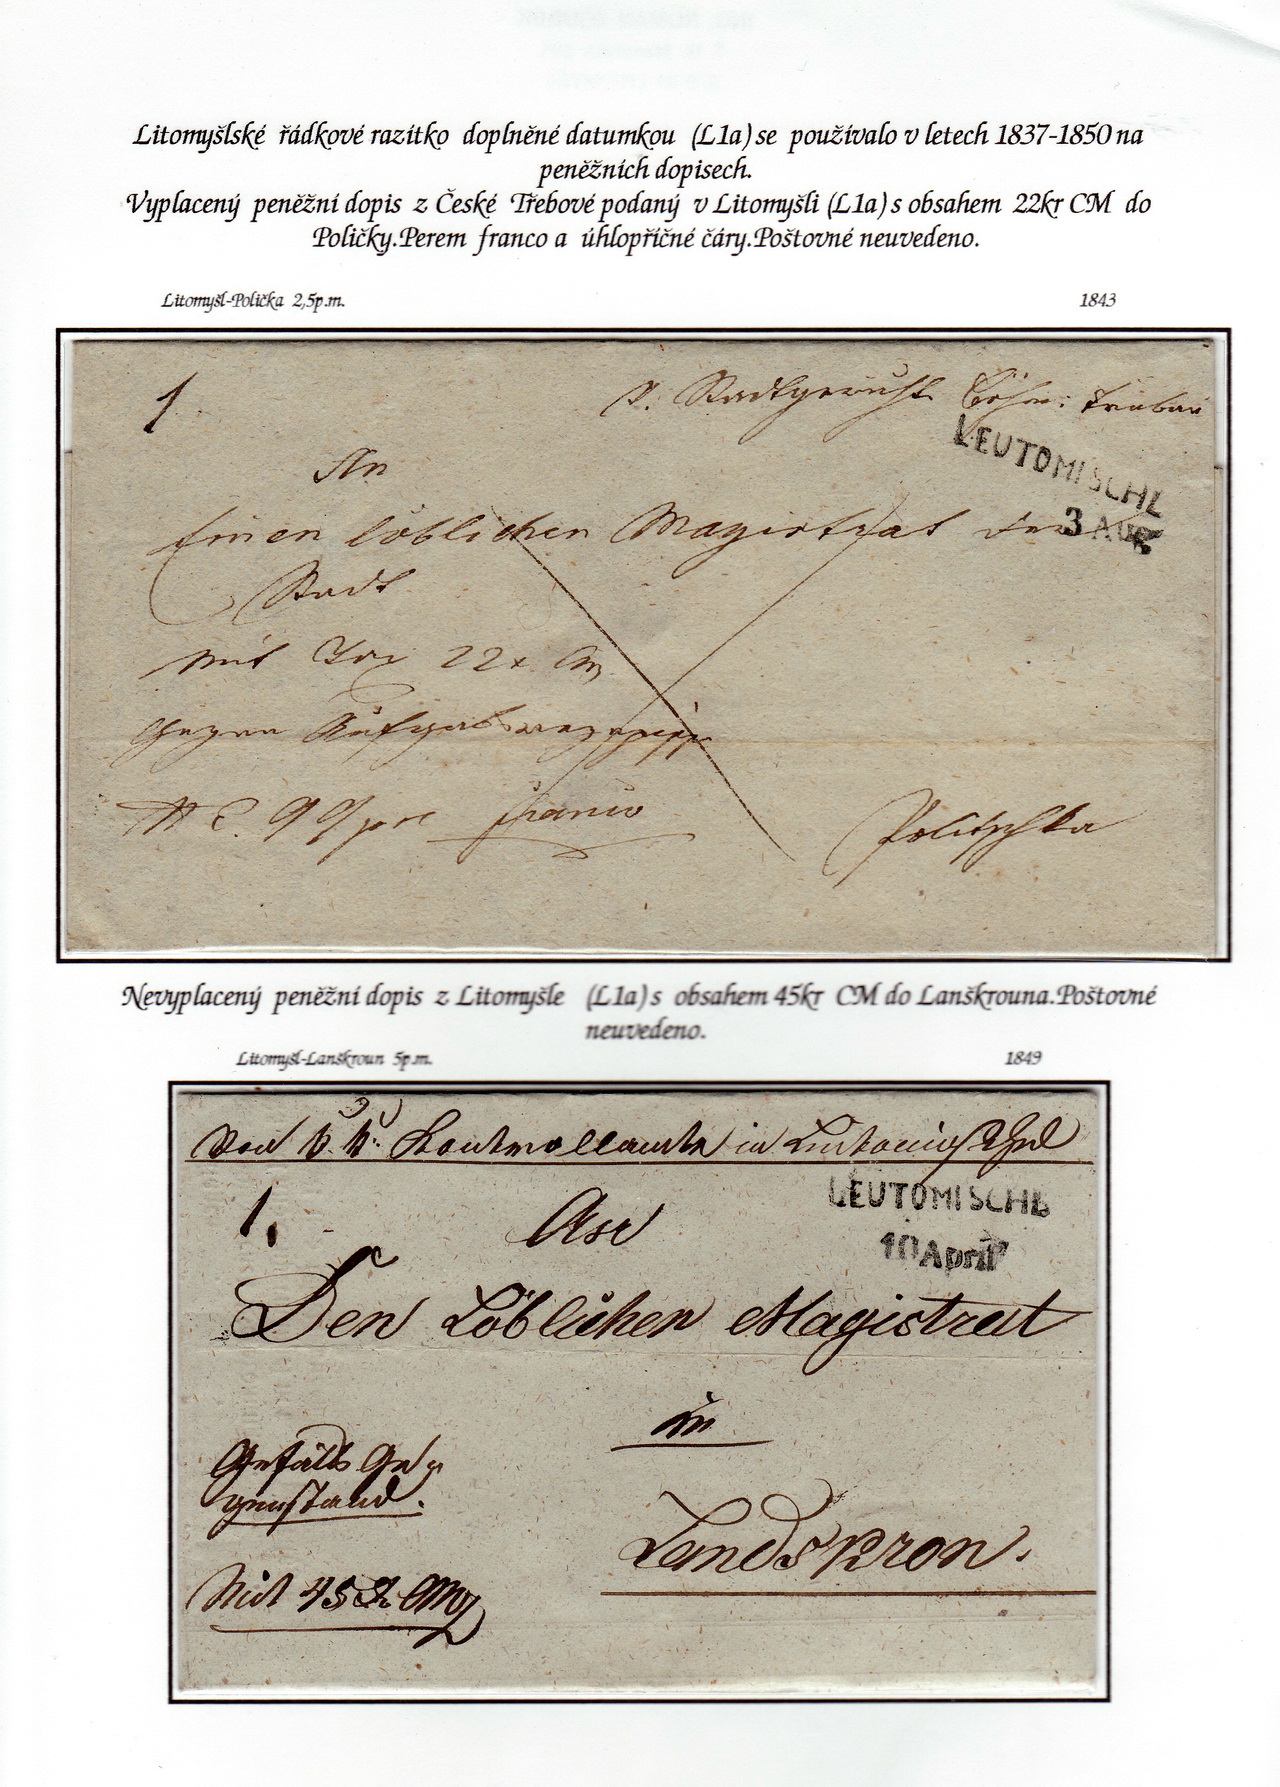 Litomyšlské řádkové razítko doplněné datumkou (L1a) se používalo v letech 1837-1850 na
peněžních dopisech.
Vyplacený peněžní dopis z České Třebové podaný v Litomyšli (L1a) s obsahem 22kr CM do
Poličky.Perem franco a úhlopříčné čáry.Poštovné neuvedeno.
Litomyšl-Polička 2,5p.m.
1843
1
Stadtgericht Böhm: Trübau
LEUTOMISCHL
3 AUG
An
Einen löblichen Magistrat der
Stadt
mit 22x CM
gegen Aufgabsrezepisse
franco
Politschka
Nevyplacený peněžní dopis z Litomyšle (L1a) s obsahem 45kr CM do Lanškrouna.Poštovné
neuvedeno.
Litomyšl-Lanškroun 5p.m.
1849
Von k. k. Kontrollamte in Leutomischl
LEUTOMISCHL
10 April
1.
An
Den Löblichen Magistrat
in
Gefälls Ge
genstand.
Landskron.
Mit 45 x CMz